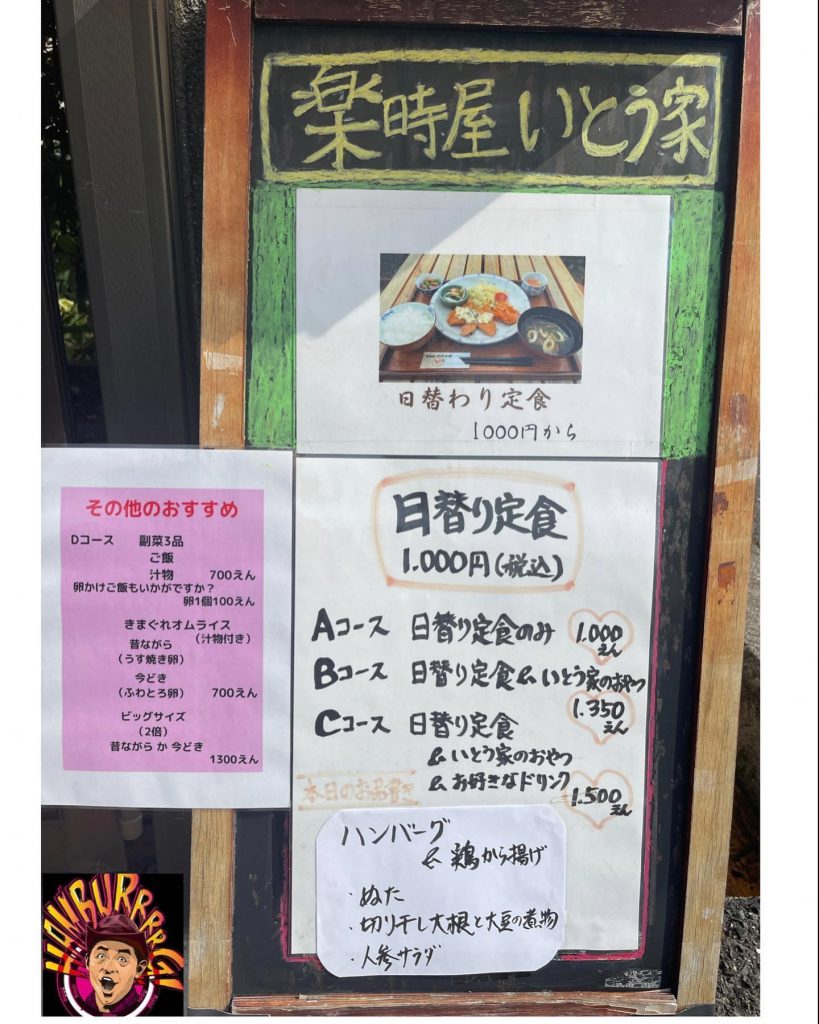 楽時屋いとう家
日替わり定食
1000円から
その他のおすすめ
Dコース 副菜3品
ご飯
汁物 700えん
卵かけご飯もいかがですか?
卵1個100えん
きまぐれオムライス
(汁物付き)
昔ながら
(うす焼き卵)
今どき
(ふわとろ卵) 700えん
ビッグサイズ
(2倍)
昔ながら か 今どき
1300えん
日替り定食
1.000円(税込)
Aコース 日替り定食のみ 1.000えん
Bコース 日替り定食&いとう家のおやつ
1.350えん
Cコース 日替り定食
&いとう家のおやつ
&お好きなドリンク
1.500えん
本日のお品書き
ハンバーグ
& 鶏から揚げ
・ぬた
・切り干し大根と大豆の煮物
・人参サラダ
HAMBURRRRG!